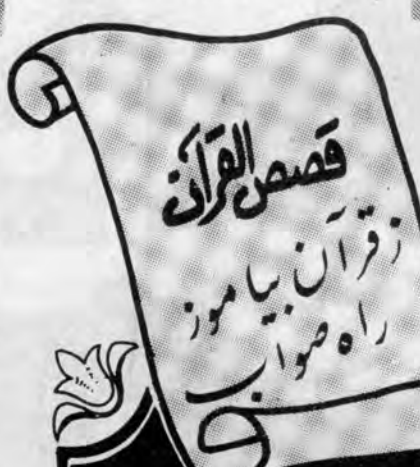 قصص القرآن
ز قرآن بیاموز
راه صواب